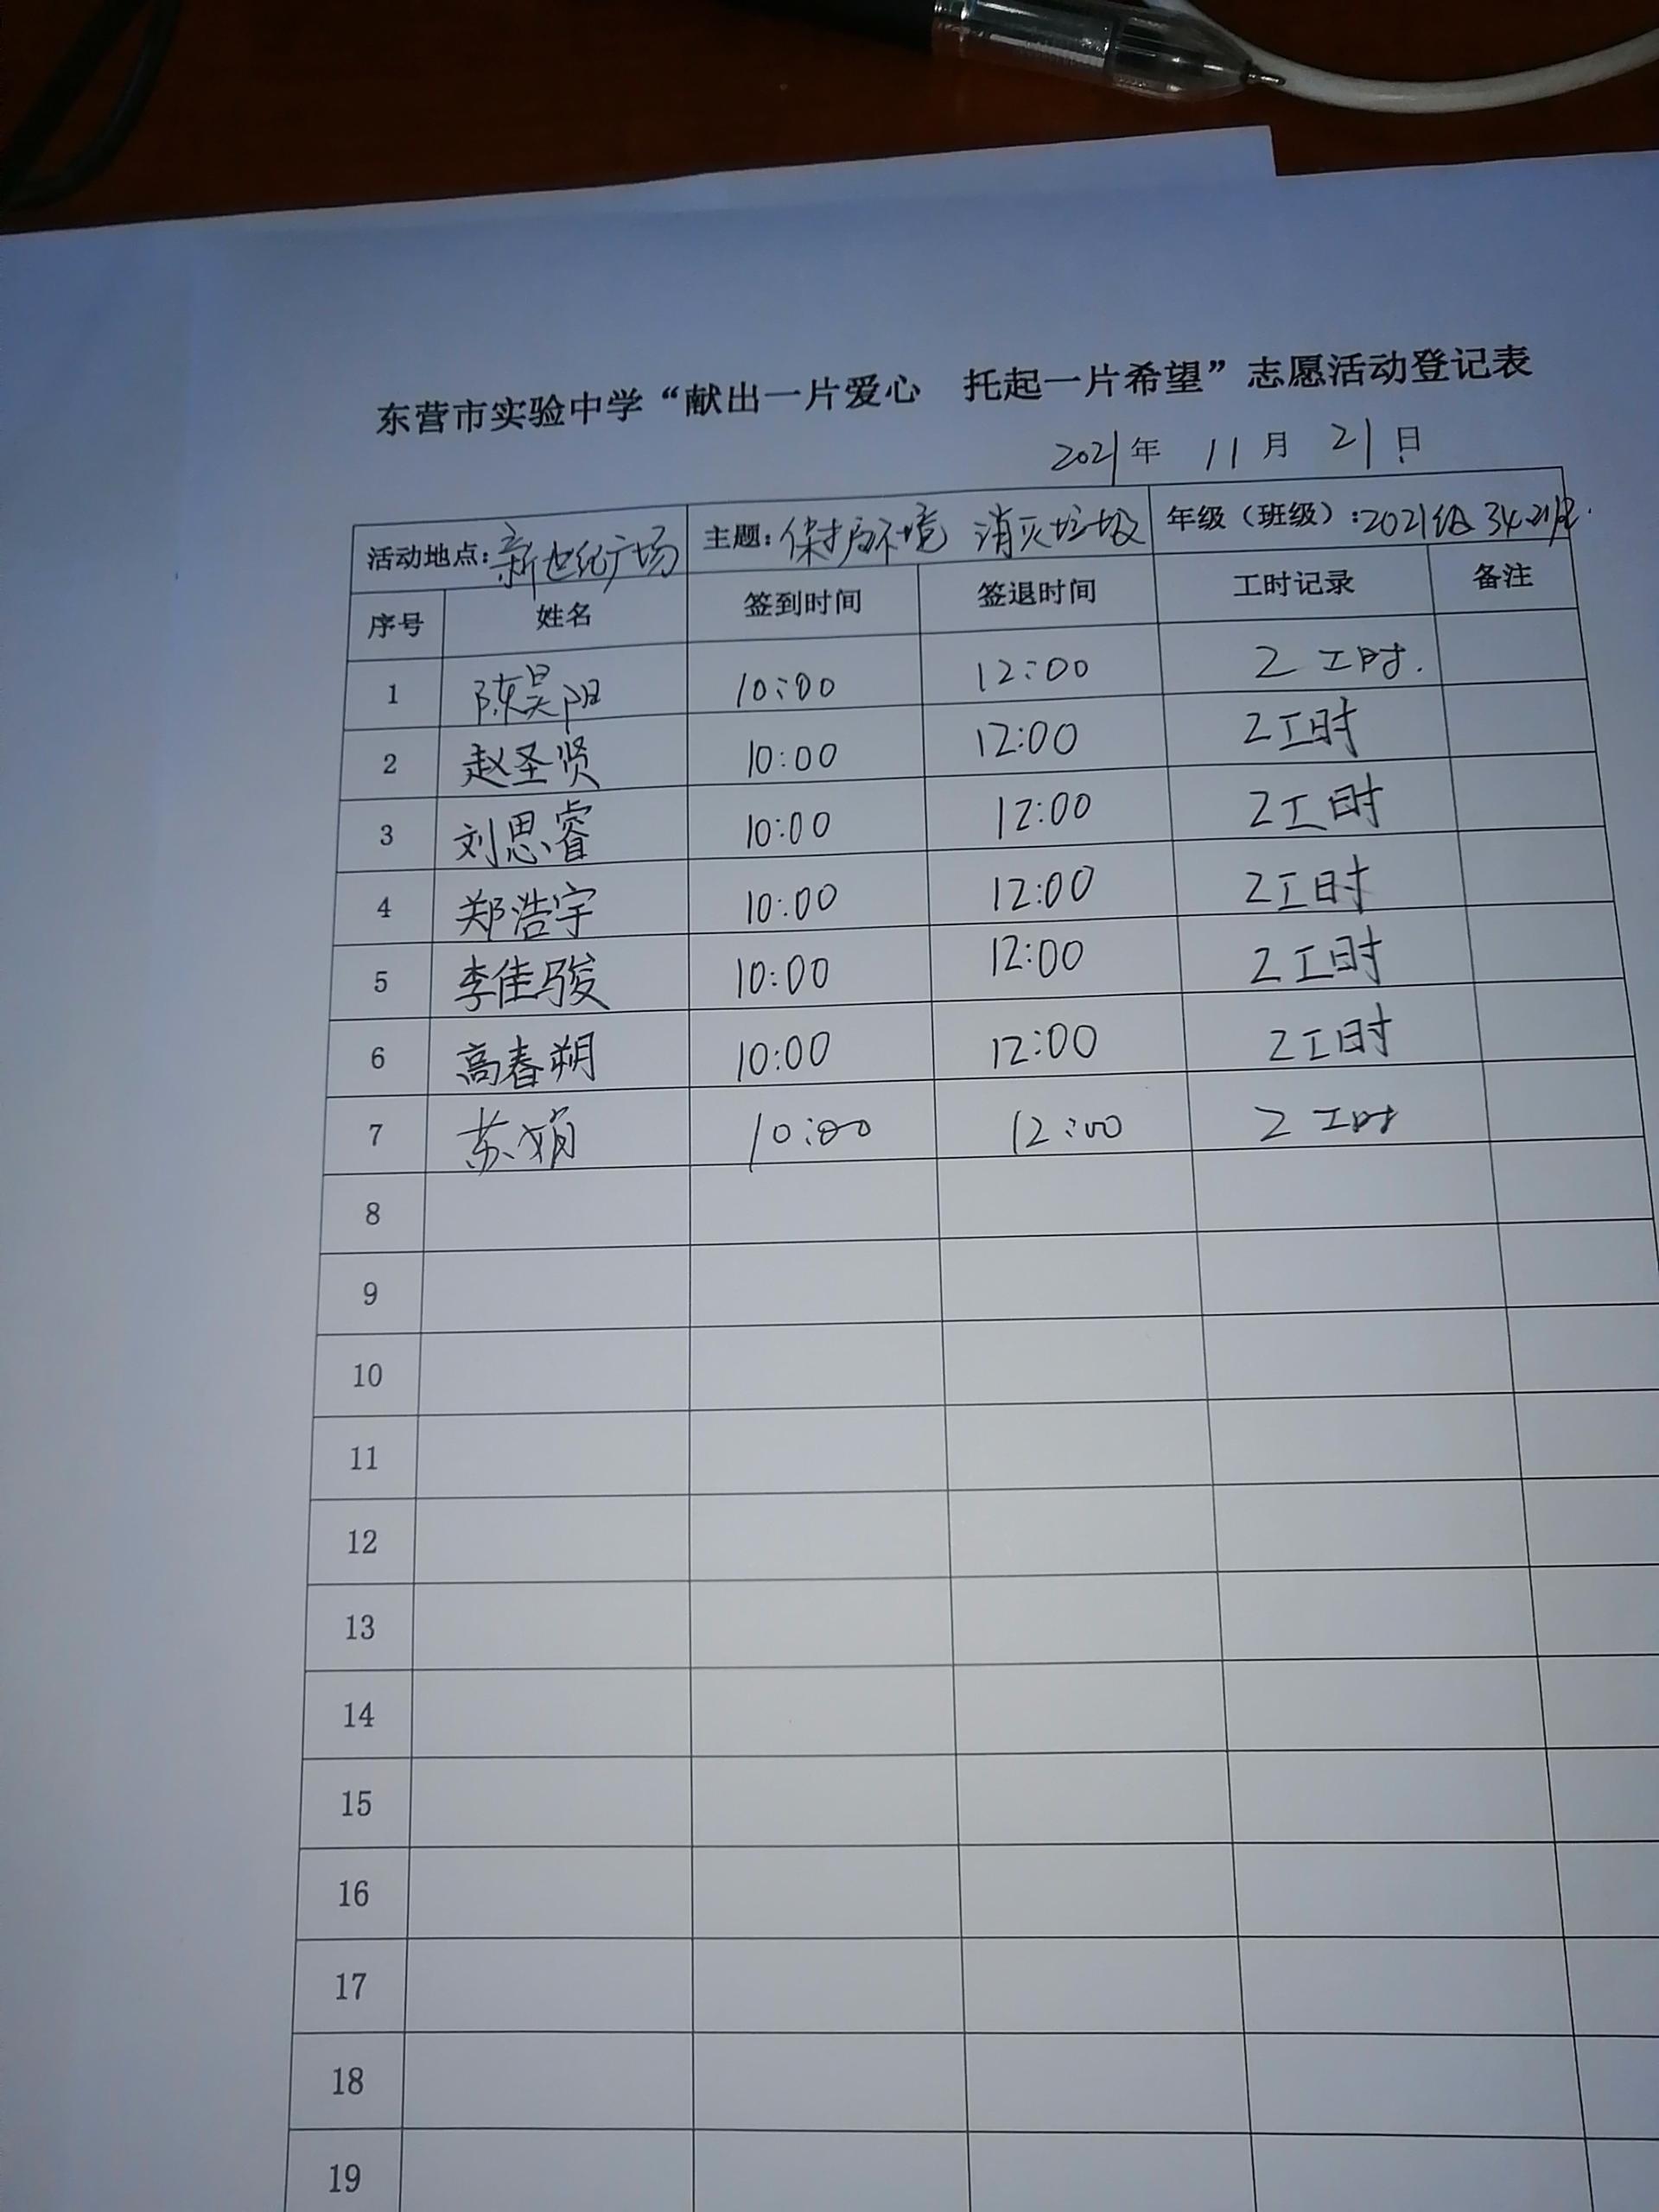 东营市实验中学“献出一片爱心 托起一片希望”志愿活动登记表
2021年 11月 21日
活动地点:新世纪广场 主题:保护环境 消灭垃圾 年级（班级）:2021级34.21班.
序号 姓名 签到时间 签退时间 工时记录 备注
1 陈昊阳 10:00 12:00 2工时.
2 赵圣贤 10:00 12:00 2工时
3 刘思睿 10:00 12:00 2工时
4 郑浩宇 10:00 12:00 2工时
5 李佳骏 10:00 12:00 2工时
6 高春朔 10:00 12:00 2工时
7 苏娟 10:00 12:00 2工时
8
9
10
11
12
13
14
15
16
17
18
19